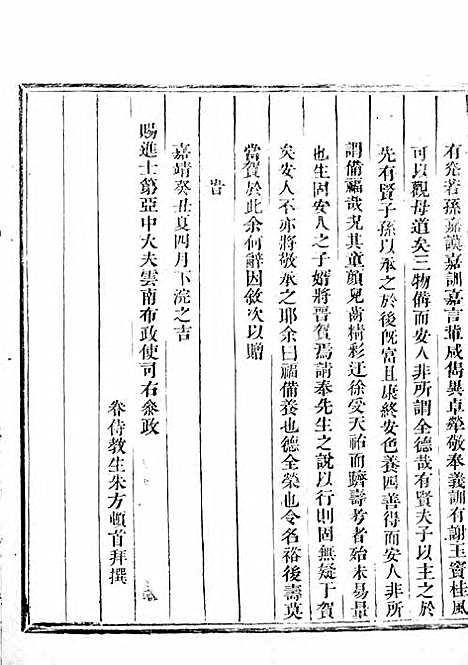 有炎若孫嘉謨嘉訓嘉言輩咸儁異卓犖敬奉義訓有謝玉竇桂風
可以觀母道矣三物備而安人非所謂全德哉有賢夫子以主之於
先有賢子孫以承之於後旣富且康終安色養四善得而安人非所
謂備福哉況其童顏兒齒精彩迂徐受天祐而躋壽考者始未易量
也生固安人之子婿將晋賀焉請奉先生之說以行則固無疑于賀
矣安人不亦將敬承之耶余曰福備養也德全榮也令名裕後壽莫
啻賀於此余何辭因敘次以贈
旹
嘉靖癸丑夏四月下浣之吉
賜進士第亞中大夫雲南布政使司右參政
眷侍教生朱方頓首拜撰